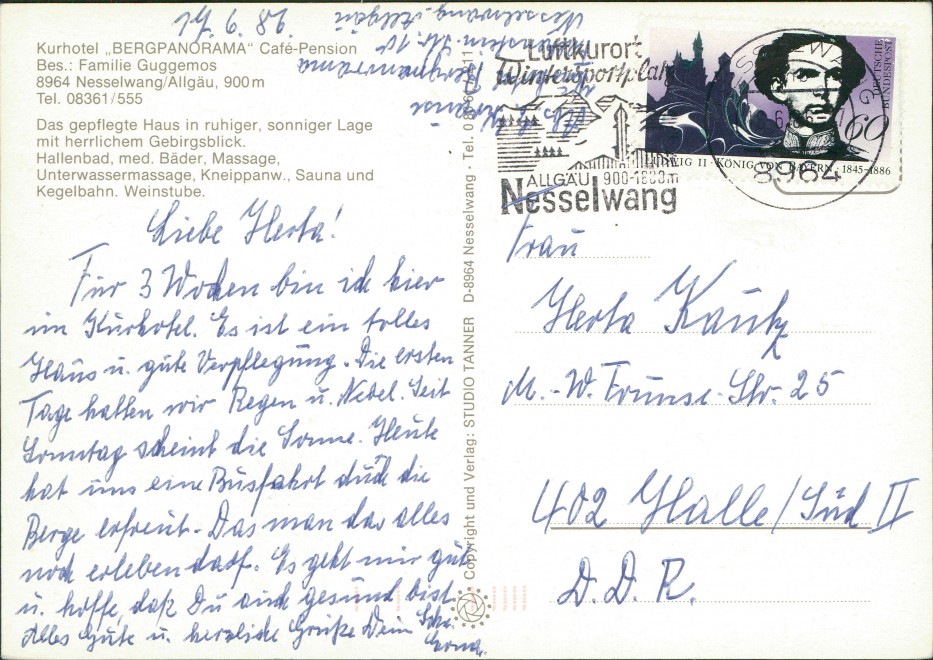 Kurhotel „BERGPANORAMA“ Café-Pension
Bes.: Familie Guggemos
8964 Nesselwang/Allgäu, 900 m
Tel. 08361/555
Das gepflegte Haus in ruhiger, sonniger Lage
mit herrlichem Gebirgsblick.
Hallenbad, med. Bäder, Massage,
Unterwassermassage, Kneippanw., Sauna und
Kegelbahn. Weinstube.
17.6.86
Liebe Herta!
Für 3 Wochen bin ich hier
im Kurhotel. Es ist ein tolles
Haus u. gute Verpflegung. Die ersten
Tage hatten wir Regen u. Nebel. Seit
Sonntag scheint die Sonne. Heute
hat uns eine Busfahrt durch die
Berge erfreut. Das man das alles
noch erleben darf. Es geht mir gut
u. hoffe, daß Du auch gesund bist
Alles Gute u. herzliche Grüße Dein
Bergpanorama
Nesselwang Allgäu
Copyright und Verlag: STUDIO TANNER D-8964 Nesselwang · Tel.
Luftkurort
Wintersportplatz
ALLGÄU 900-1600m
Nesselwang
8964
DEUTSCHE
BUNDESPOST
60
LUDWIG II · KÖNIG VON BAYERN · 1845-1886
Frau
Herta Kautz
M.-W. Frunse-Str. 25
402 Halle/Süd II
D.D.R.